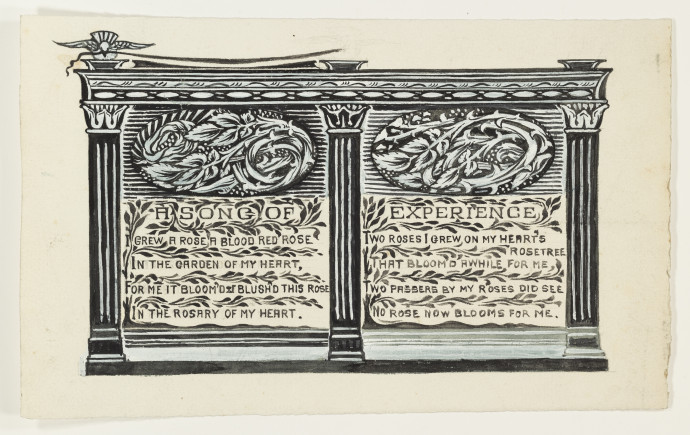 A SONG OF EXPERIENCE
I GREW A ROSE A BLOOD RED ROSE
IN THE GARDEN OF MY HEART,
FOR ME IT BLOOM'D & BLUSH'D THIS ROSE
IN THE ROSARY OF MY HEART.
TWO ROSES I GREW, ON MY HEART'S
ROSETREE
THAT BLOOM'D AWHILE FOR ME,
TWO PASSERS BY MY ROSES DID SEE
NO ROSE NOW BLOOMS FOR ME.